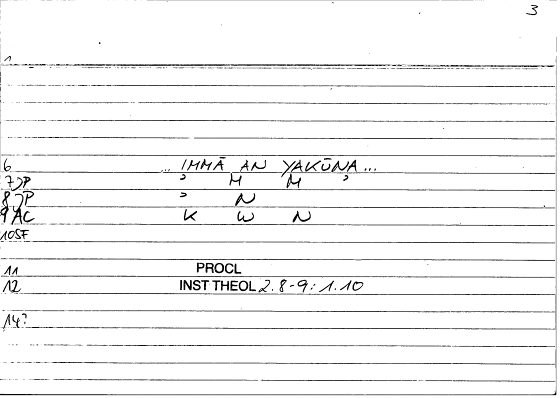 3
1
6 ... IMMĀ AN YAKŪNA...
7 JP ʾ M M ʾ
8 JP ʾ N
9 AC K W N
10 SF
11 PROCL
12 INST THEOL 2.8-9: 1.10
14?